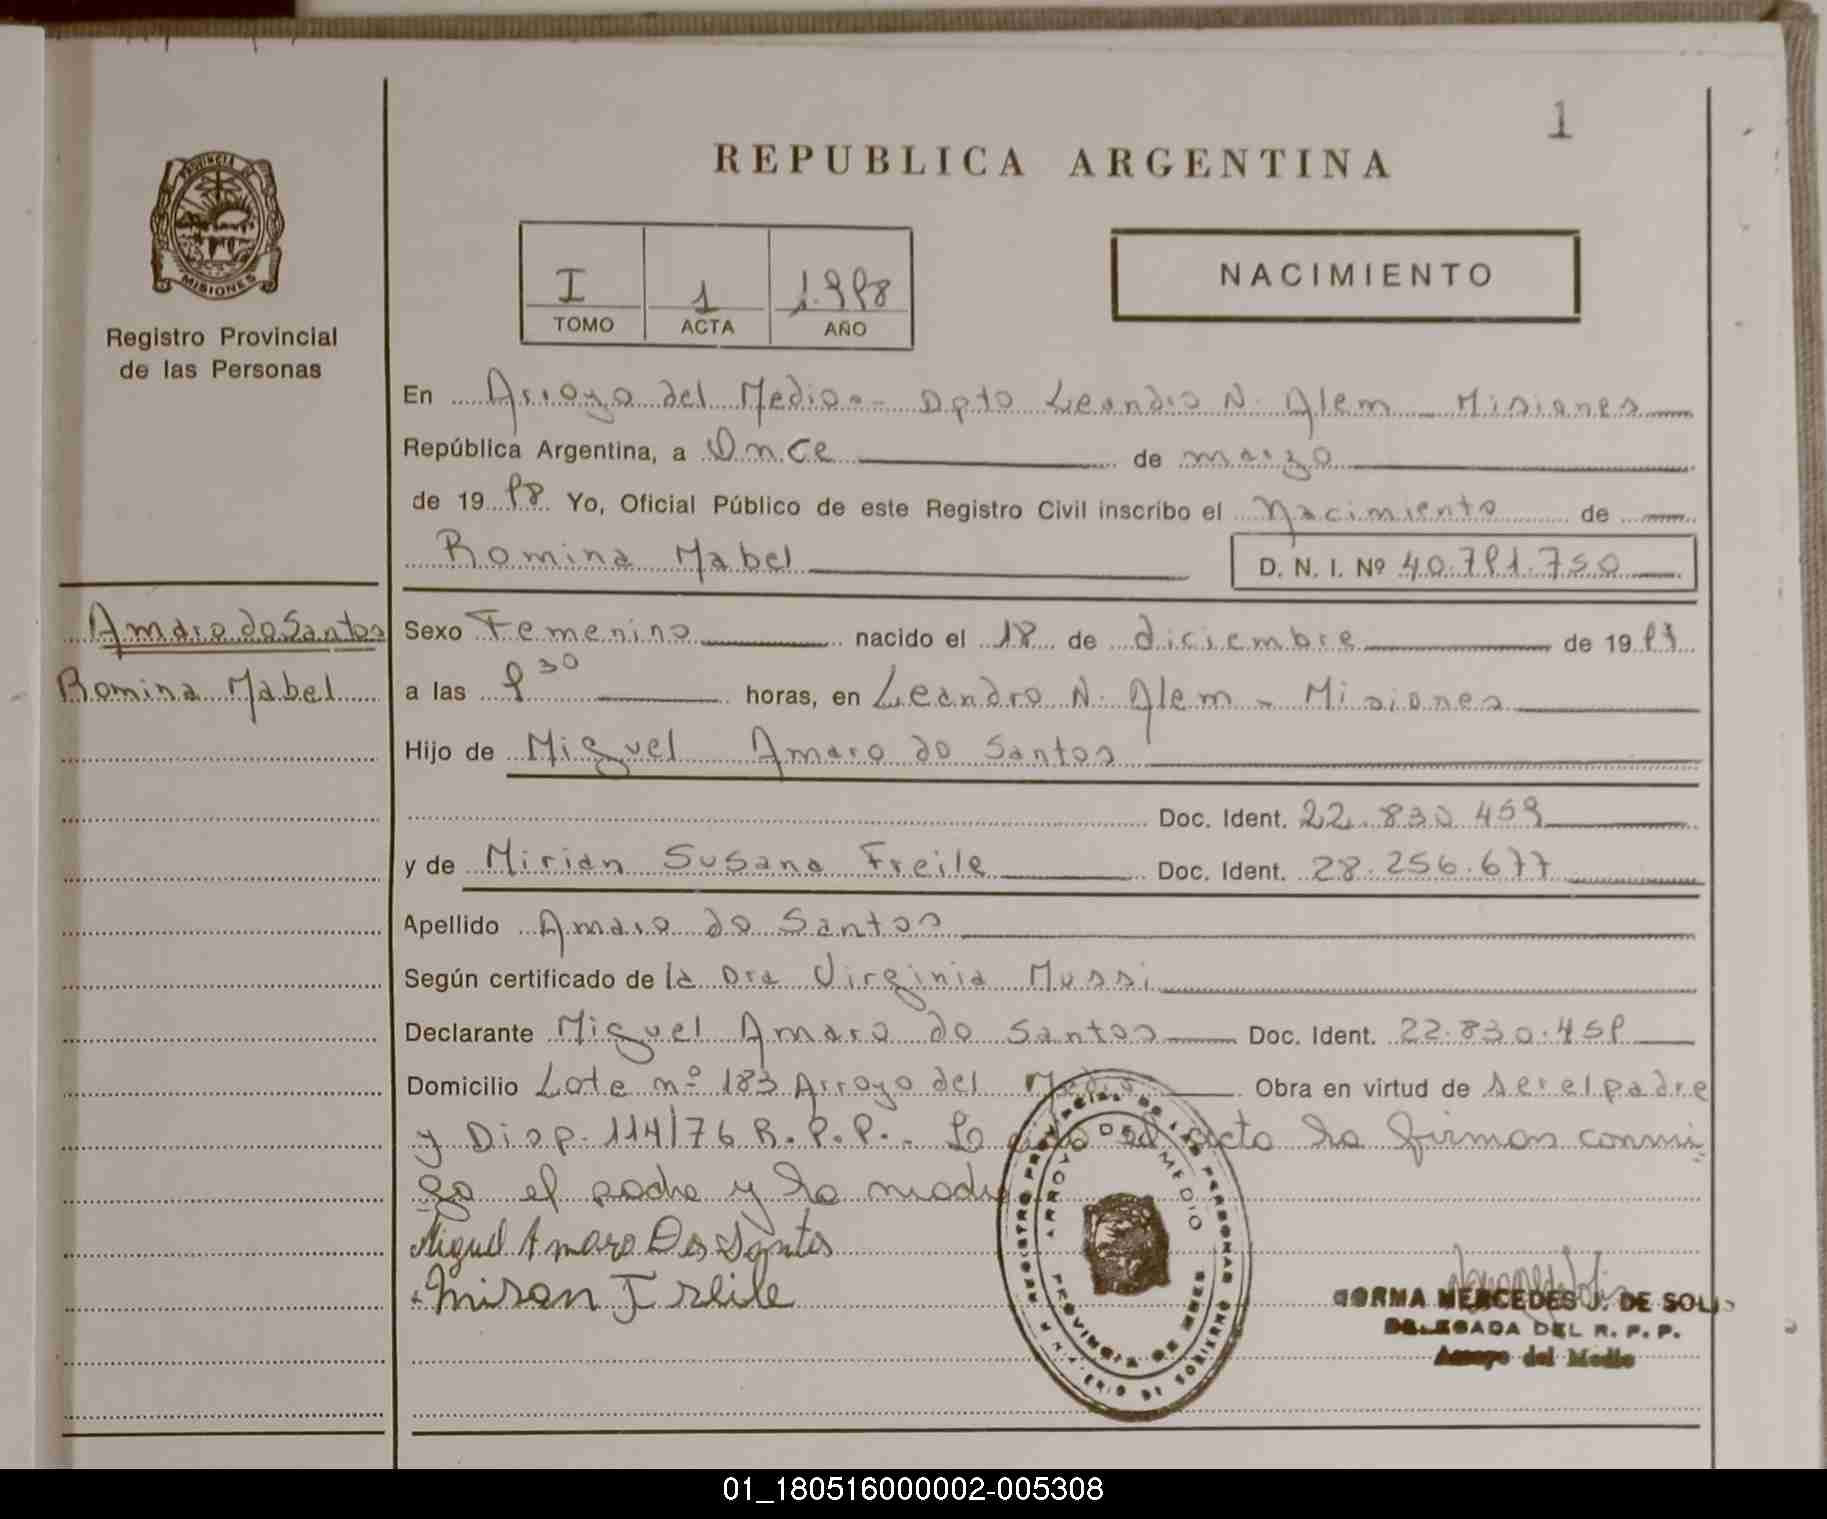 1
REPUBLICA ARGENTINA
PROVINCIA DE
MISIONES
Registro Provincial
de las Personas
I 1 1.998
TOMO ACTA AÑO
NACIMIENTO
En Arroyo del Medio.- Dpto Leandro N. Alem - Misiones
República Argentina, a Once de marzo
de 1998 Yo, Oficial Público de este Registro Civil inscribo el Nacimiento de
Romina Mabel D. N. I. Nº 40.791.750
Amaro do Santos
Romina Mabel
Sexo Femenino nacido el 18 de diciembre de 1997
a las 9 30 horas, en Leandro N. Alem - Misiones
Hijo de Miguel Amaro do Santos
Doc. Ident. 22.830.459
y de Mirian Susana Freile Doc. Ident. 28.256.677
Apellido Amaro do Santos
Según certificado de la Dra Virginia Mussi
Declarante Miguel Amaro do Santos Doc. Ident. 22.830.459
Domicilio Lote nº 183 Arroyo del Medio Obra en virtud de ser el padre
y Disp. 114/76 R.P.P.- el acta la firman conmi
go el padre y la madre
Miguel Amaro Do Santos
Miran F reile
REGISTRO PROVINCIAL DE LAS PERSONAS
ARROYO DEL MEDIO
PROVINCIA DE MNES
MINISTERIO DE GOBIERNO
NORMA MERCEDES J. DE SOLIS
DELEGADA DEL R. P. P.
Arroyo del Medio
01_180516000002-005308